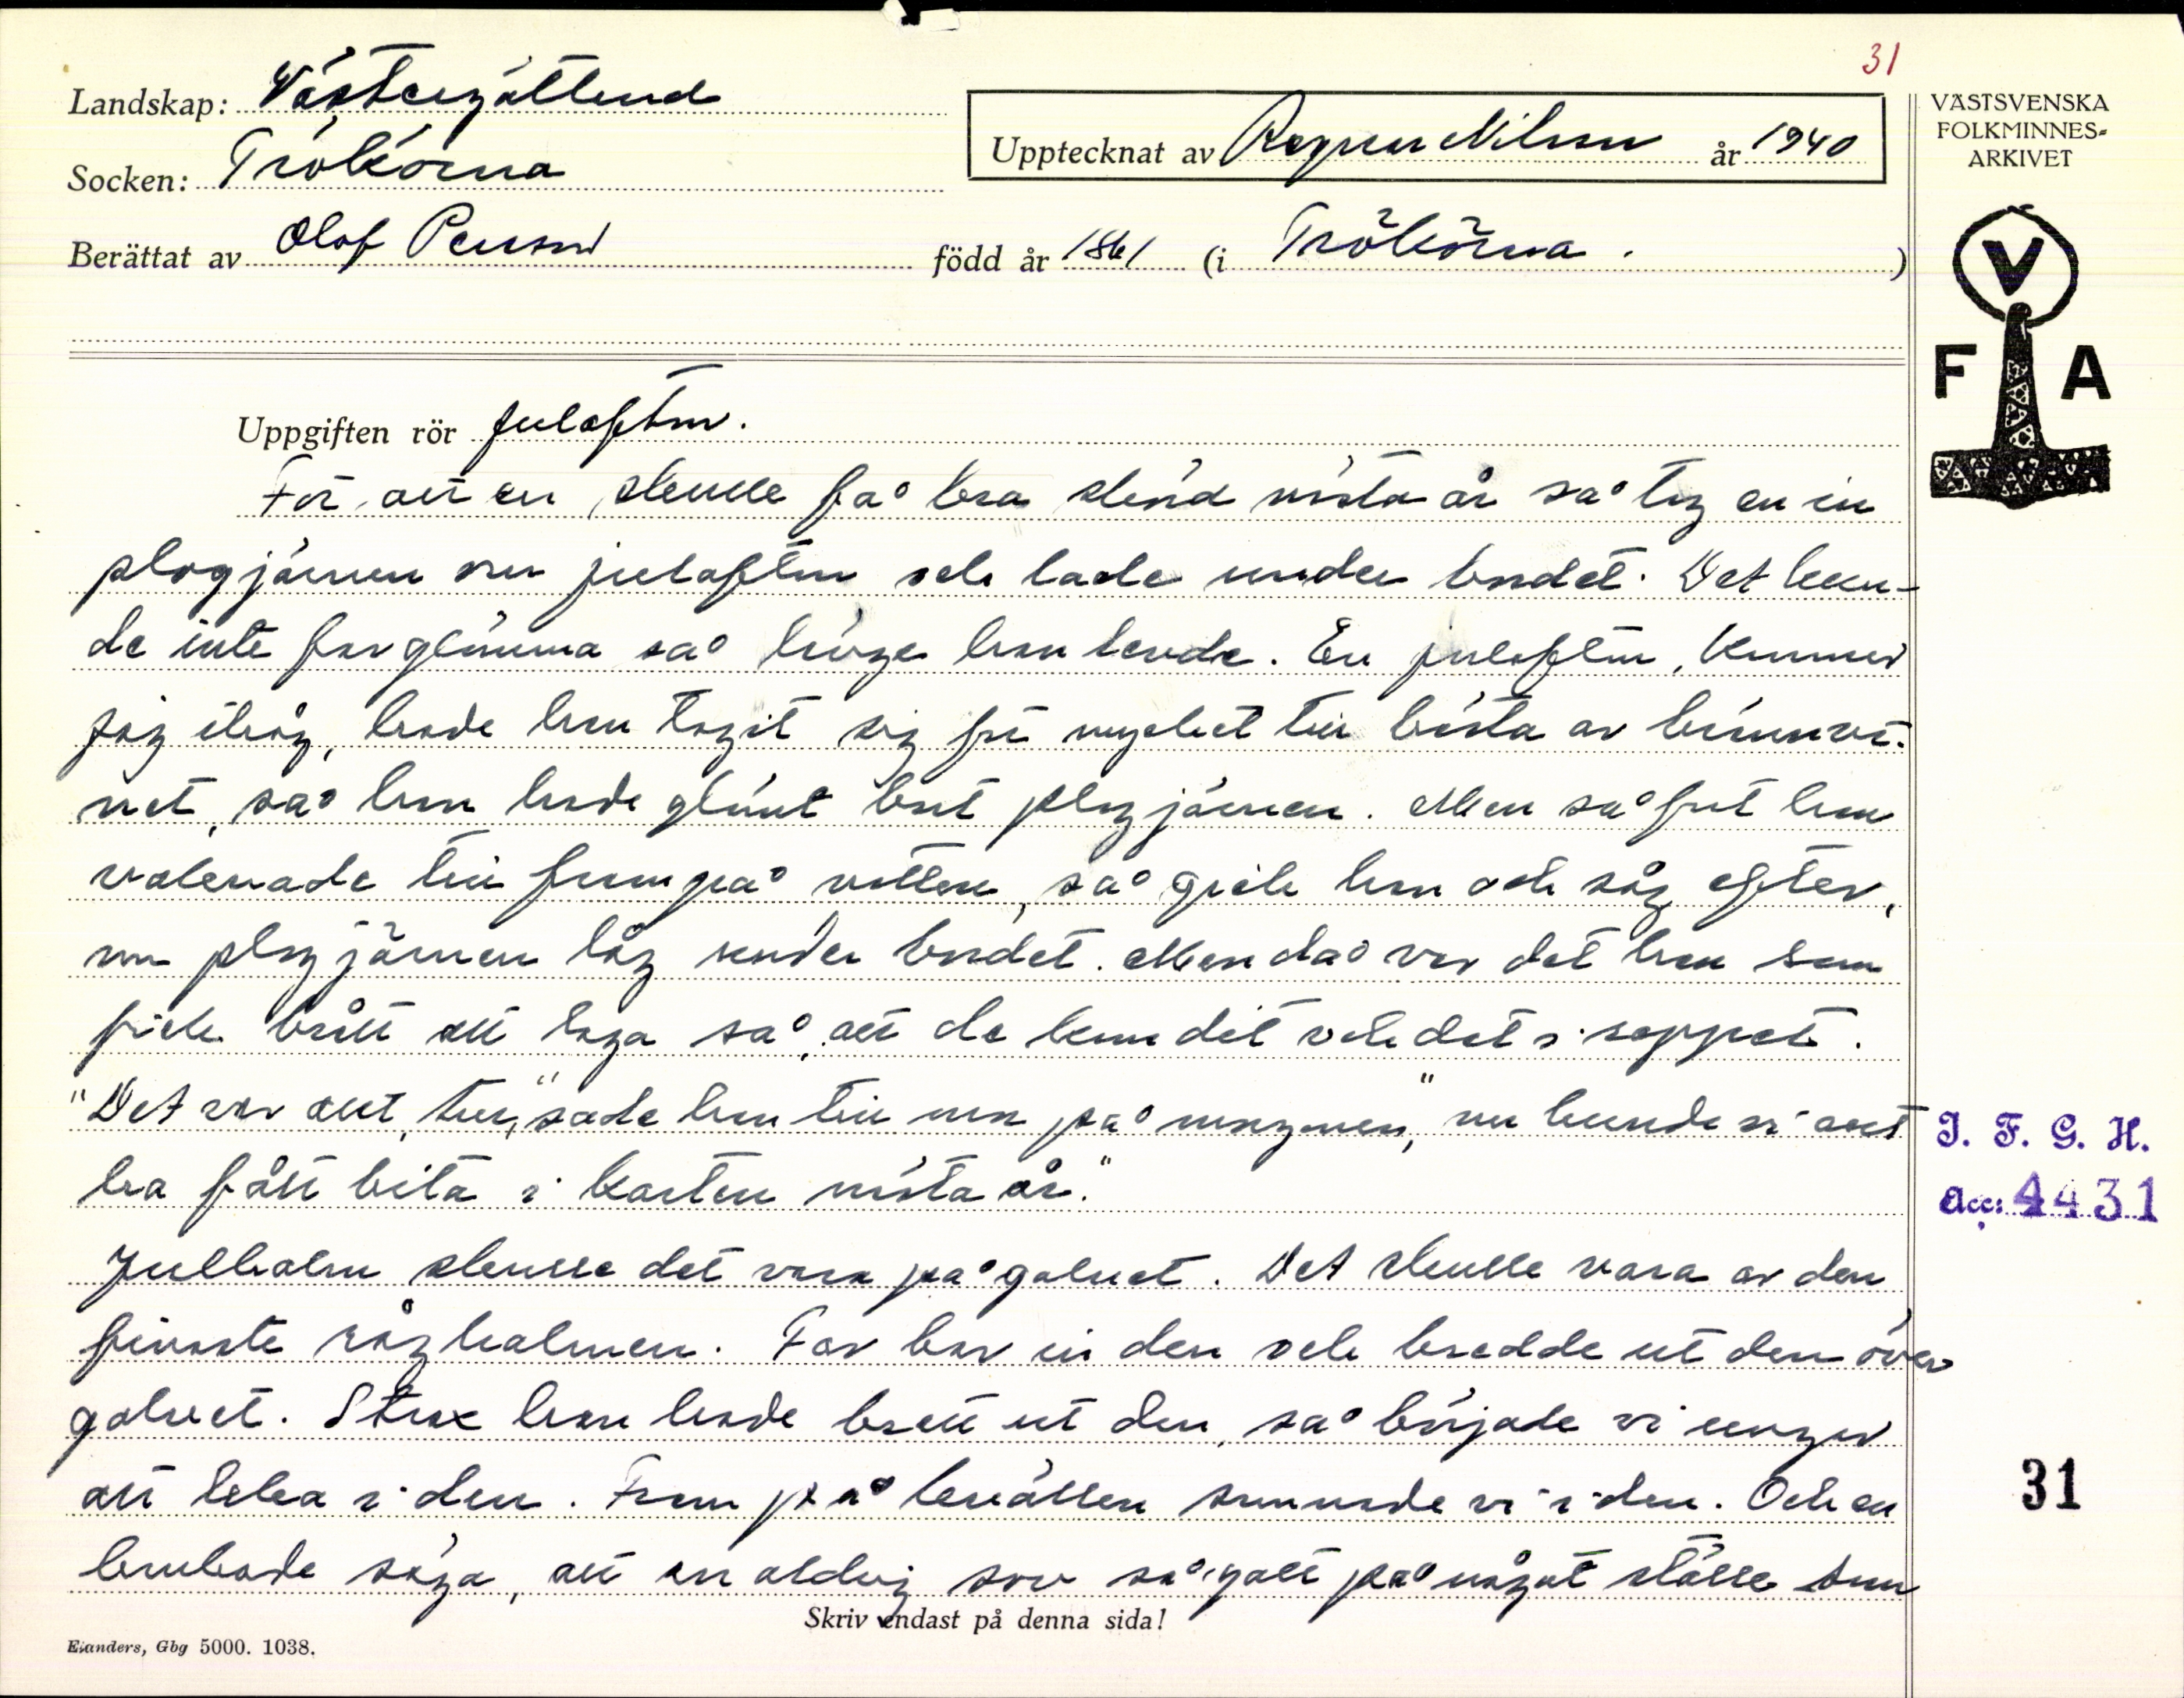 31
Landskap: Västergötland
VÄSTSVENSKA
FOLKMINNES-
ARKIVET
Upptecknat av Ragnar Nilsson år 1940
Socken: Trökörna
Berättat av Olof Persson född år 1861 (i Trökörna.)
V
F A
Uppgiften rör julafton.
För att en skulle få bra skörd nästa år så tog en in
plogjärnen om julafton och lade under bordet. Det kun-
de inte far glömma så länge han levde. En julafton, kommer
jag ihåg, hade han tagit sig för mycket till bästa av brännvi-
net, så han hade glömt bort plogjärnen. Men så fort han
vaknade till fram på natten, så gick han och såg efter,
om plogjärnen låg under bordet. Men då var det han som
fick brått att laga så, att de kom dit och det i rappet.
"Det var allt tur," sade han till mor på morgonen, "nu kunde vi allt
ha fått bita i karten nästa år."
Julhalm skulle det vara på golvet. Det skulle vara av den
finaste råghalmen. Far bar in den och bredde ut den över
golvet. Strax han hade brett ut den, så började vi ungar
att leka i den. Fram på kvällen somnade vi i den. Och en
brukade säga, att en aldrig sov så gott på något ställe som
I. F. G. H.
Acc: 4431
31
Skriv endast på denna sida!
Elanders, Gbg 5000. 1038.